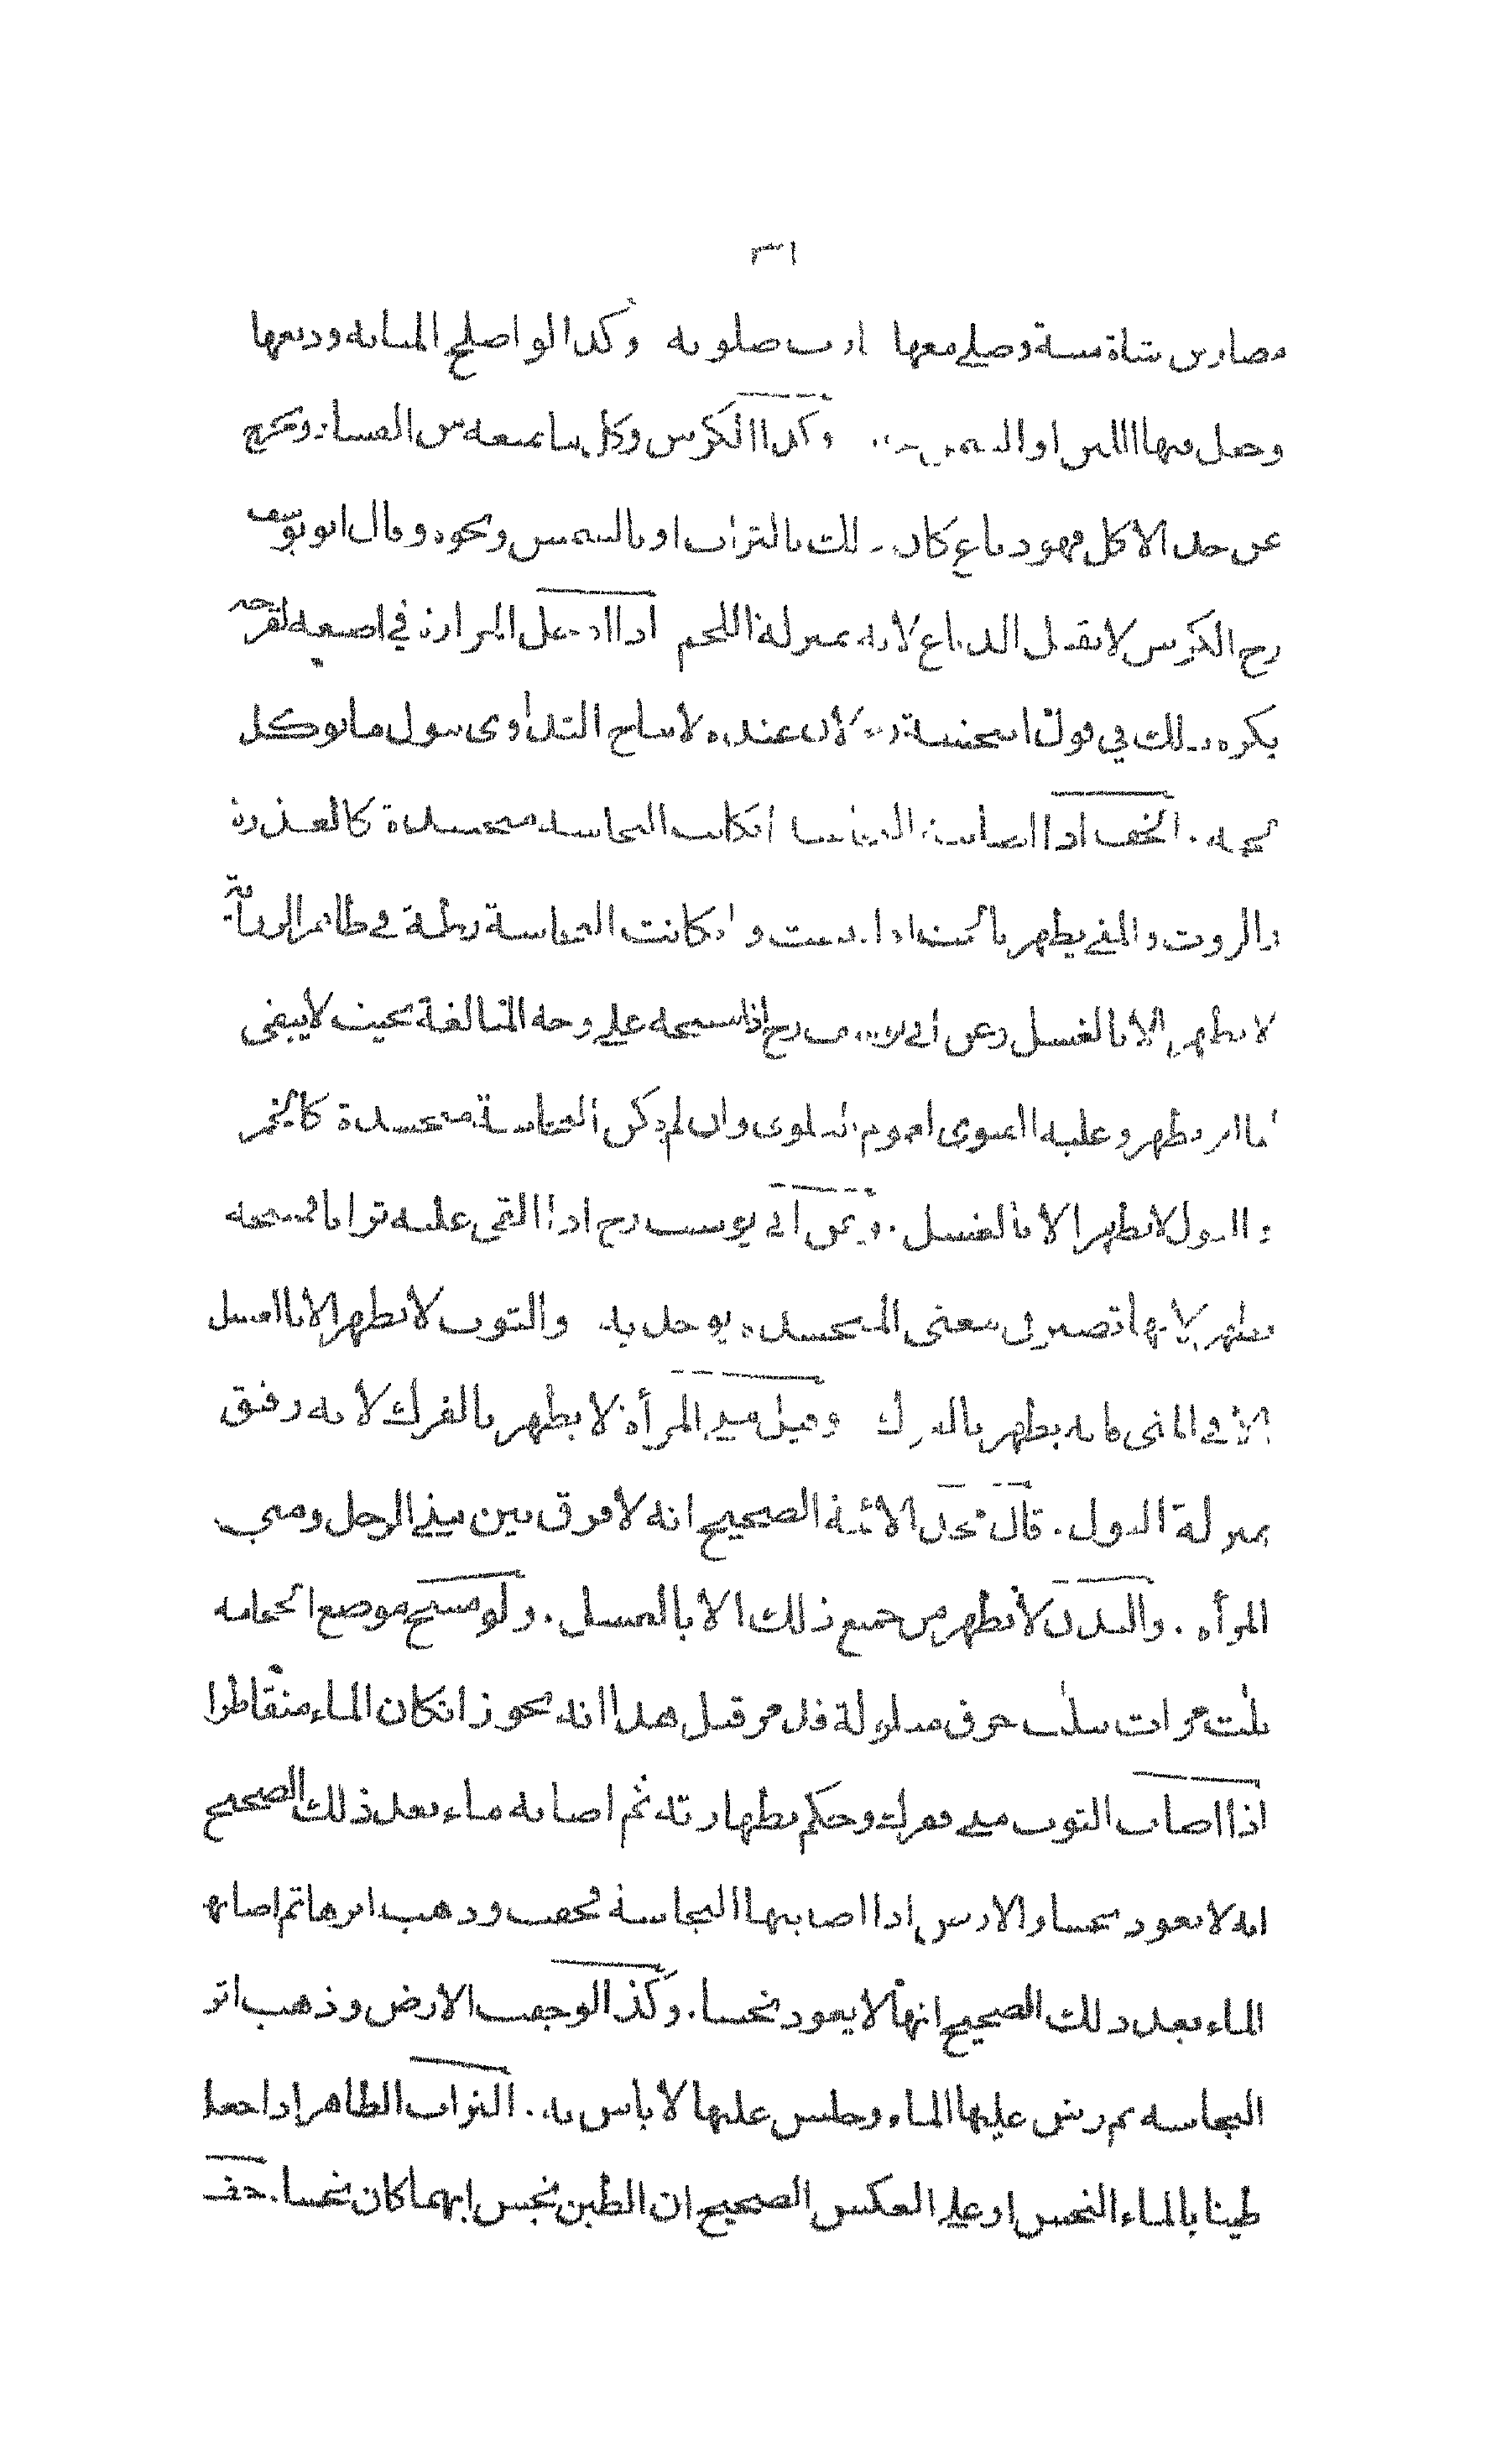 ٣١
مصارين شاة ميتة وصلى معها جازت صلوته وكذا لو اصلح المثانة ودبغها
وجعل فيها اللبن او السمن جاز وكذا الكرش وكل ما يمنعه من الفساد ويخرج
عن حد الاكل فهو دباغ كان ذلك بالتراب او بالشمس ونحوه وقال ابو يوسف
رح الكرش لا يقبل الدباغ لانه بمنزلة اللحم اذا ادخل المرارة في اصبعه لقرحه
يكره ذلك في قول ابي حنيفة رح لان عنده لا يباح التداوى ببول ما يوكل
لحمه . الخف اذا اصابته النجاسة ان كانت النجاسة متجسدة كالعذرة
والروث والمني يطهر بالحت اذا يبست وان كانت النجاسة رطبة في ظاهر الرواية
لا يطهر الا بالغسل وعن ابي يوسف رح اذا مسحه على وجه المبالغة بحيث لا يبقى
لها اثر يطهر وعليه الفتوى لعموم البلوى وان لم تكن النجاسة متجسدة كالخمر
والبول لا يطهر الا بالغسل . وعن ابي يوسف رح اذا القى عليه ترابا فمسحه
يطهر لانها تصير في معنى المتجسدة يوخذ به والثوب لا يطهر الا بالغسل
الا في المنى فانه يطهر بالفرك وقيل مني المرأة لا يطهر بالفرك لانه رقيق
بمنزلة البول . قال فخر الائمة الصحيح انه لا فرق بين مني الرجل ومني
المرأة . والبدن لا يطهر من جميع ذلك الا بالغسل . ولو مسح موضع الحجامة
ثلث مرات بثلث خرق مبلولة قد مر قبل هذا انه يجوز ان كان الماء متقاطرا
اذا اصاب الثوب مني ففرك وحكم بطهارته ثم اصابه ماء بعد ذلك الصحيح
انه لا يعود نجسا والارض اذا اصابتها النجاسة فجفت وذهب اثرها ثم اصابها
الماء بعد ذلك الصحيح انها لا يعود نجسا . وكذا لو جفت الارض وذهب اثر
النجاسة ثم رش عليها الماء وجلس عليها لا باس به . التراب الطاهر اذا جعل
طينا بالماء النجس او على العكس الصحيح ان الطين نجس ايهما كان نجسا . خف